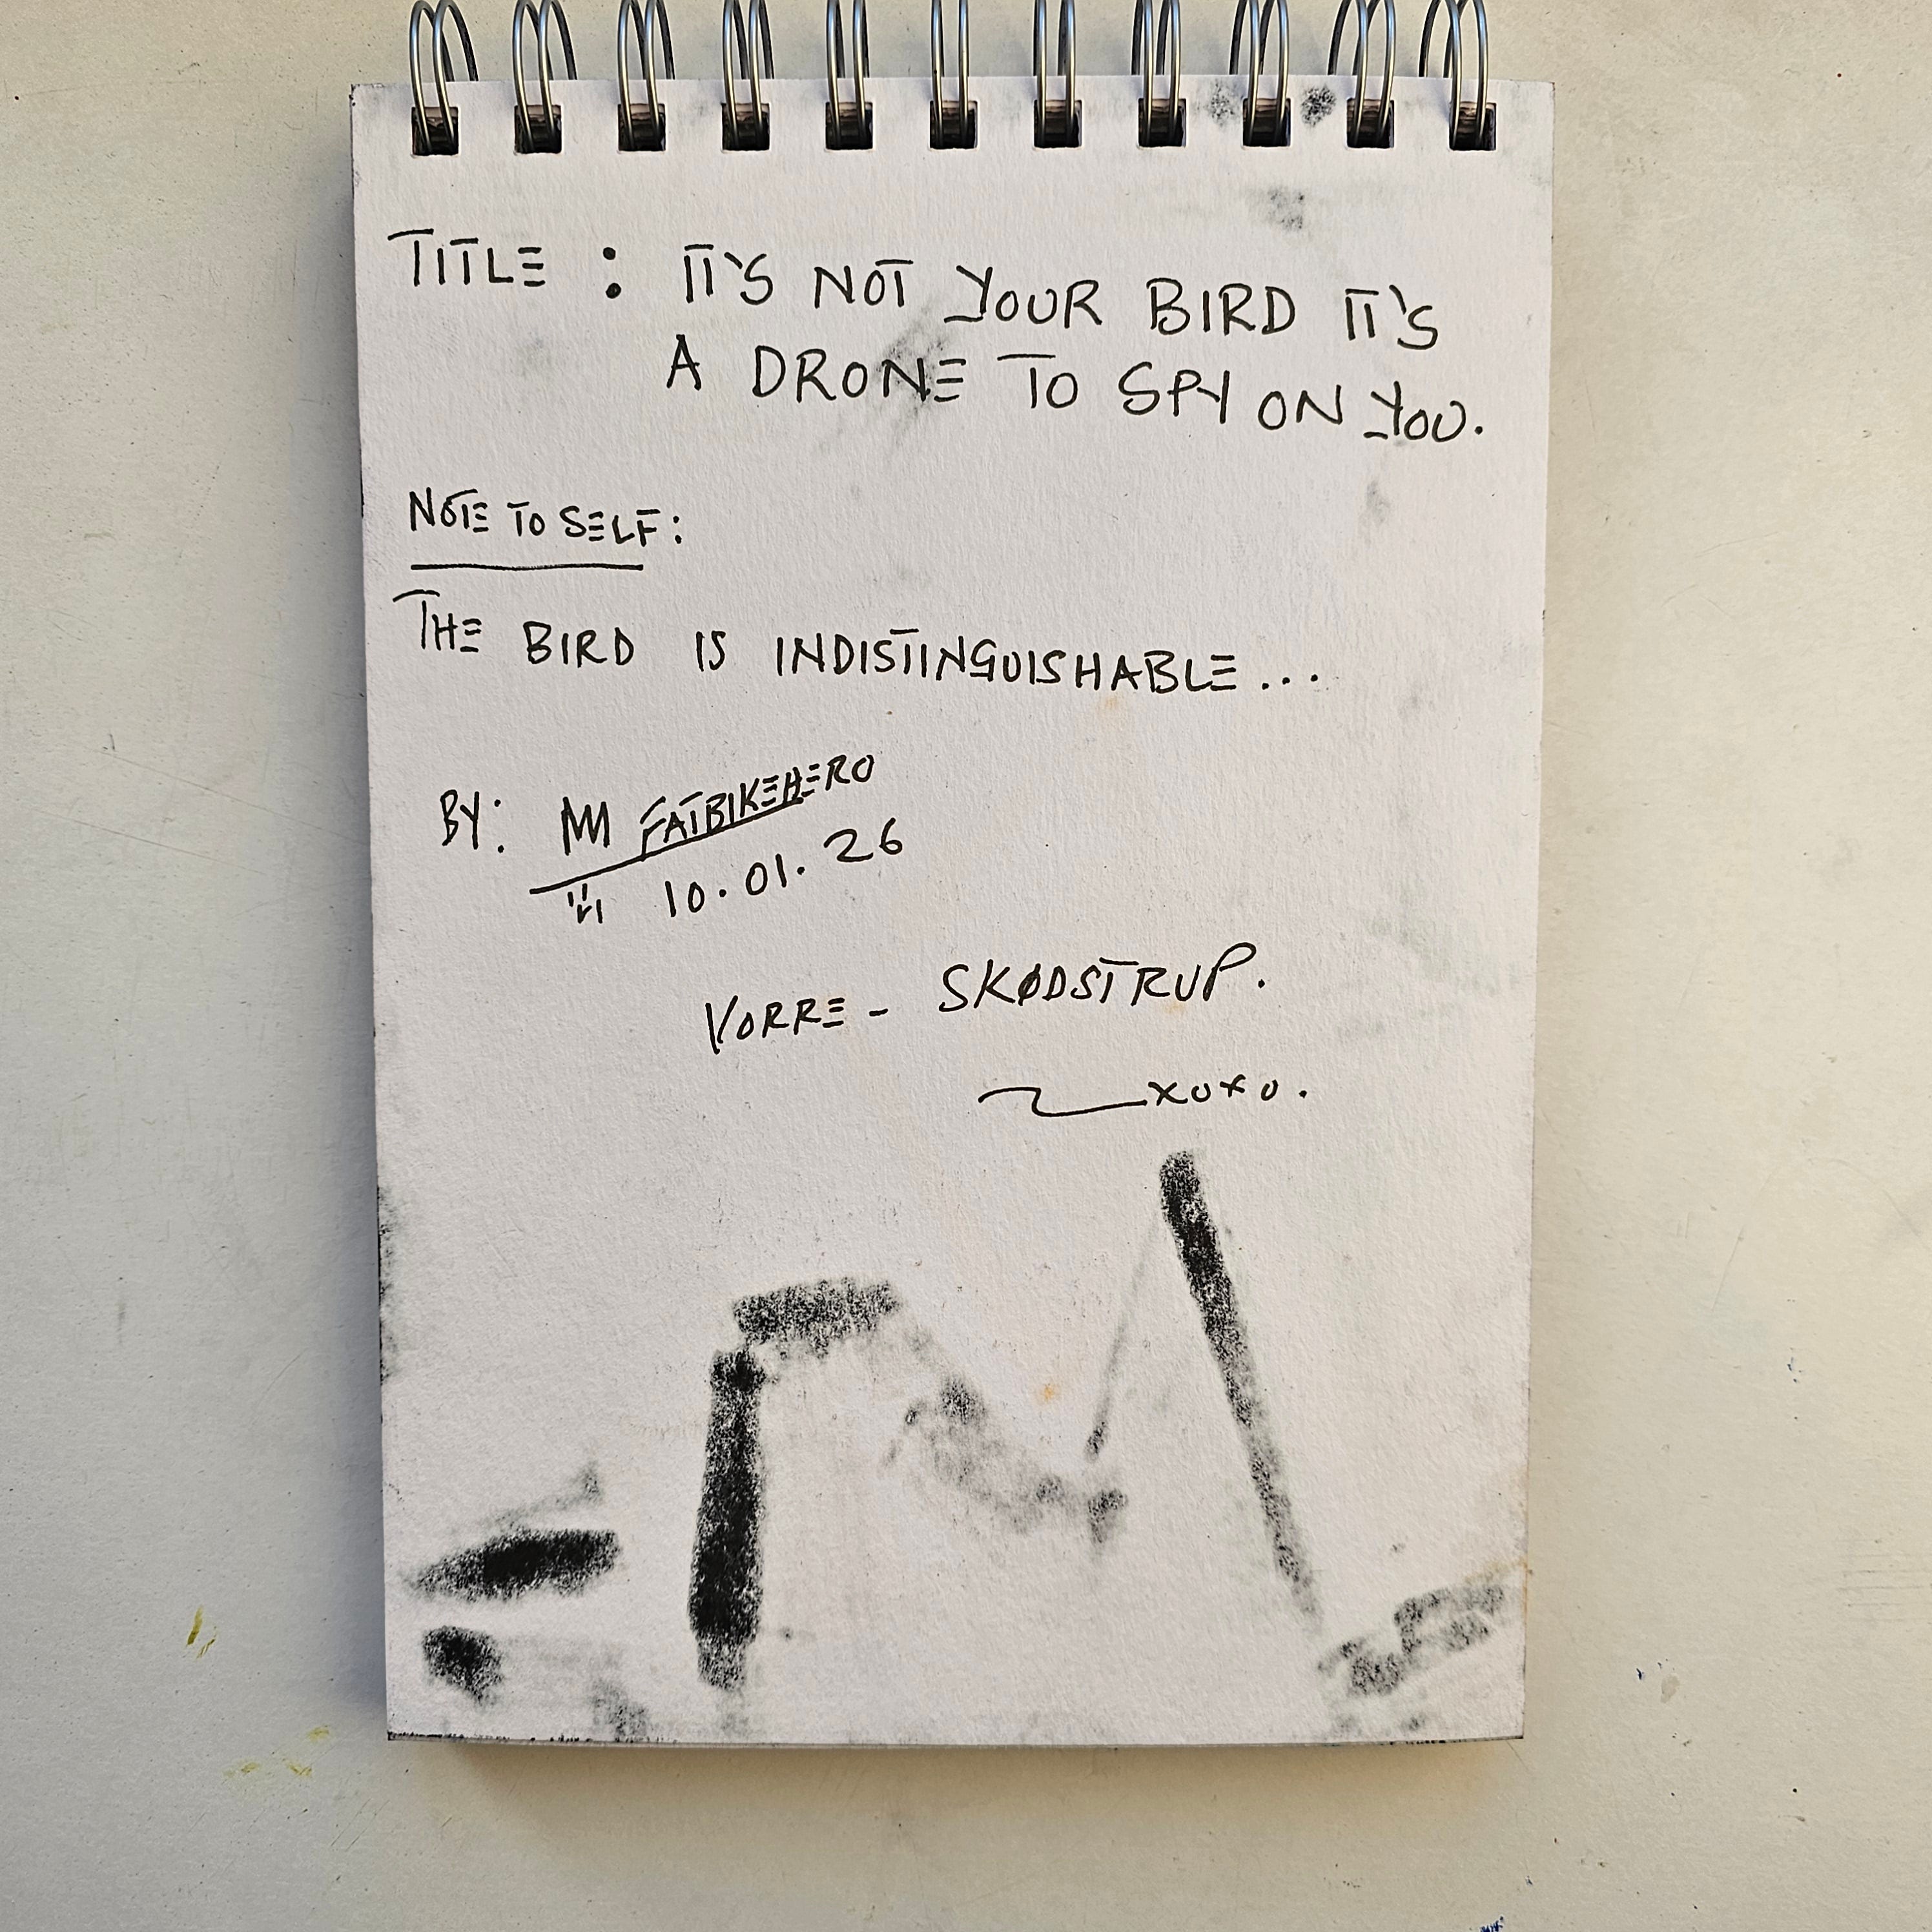 TITLE : IT'S NOT YOUR BIRD IT'S
A DRONE TO SPY ON YOU.
NOTE TO SELF:
THE BIRD IS INDISTINGUISHABLE...
BY: FATBIKEHERO
10.01.26
VORRE - SKØDSTRUP.
xoxo.